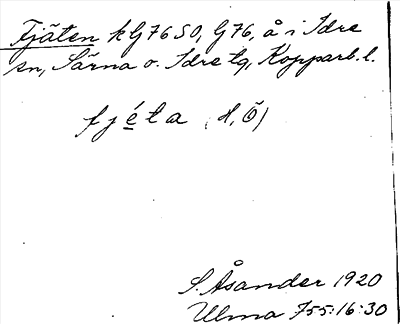 Fjäten k G76 SO, G76, å i Idre
sn, Särna o. Idre tg, Kopparb. l.
fjéta (d, Ö)
S. Åsander 1920
Ulma 755:16:30